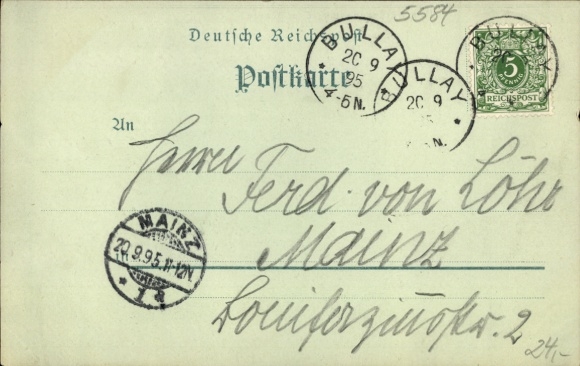 5584
Deutsche Reichspost
Postkarte
BULLAY
20 9
95
4-5N.
BULLAY
20 9
N.
BULLAY
5
PFENNIG
REICHSPOST
An
Herrn
Ferd. von Löhr
Mainz
MAINZ
20.9.95.11-12N
1 a
Bonifaziusstr. 2
24,-